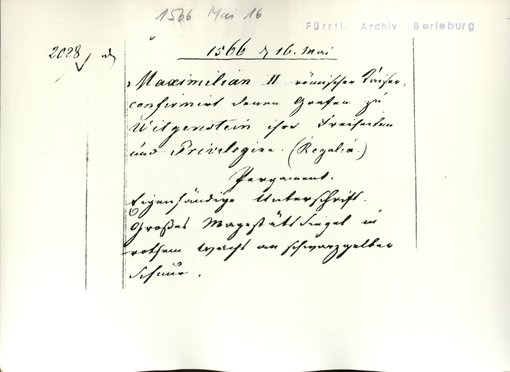 1566 Mai 16
Fürstl. Archiv Berleburg
2028
1566 d 16. Mai
Maximilian II römischer Kaiser,
confirmirt denen Grafen zu
Witgenstein ihre Freiheiten
und Privilegien. (Regalia.)
Pergament.
Eigenhändige Unterschrift.
Großes Magestätssiegel in
rothem Wachs an schwarzgelber
Schnur.